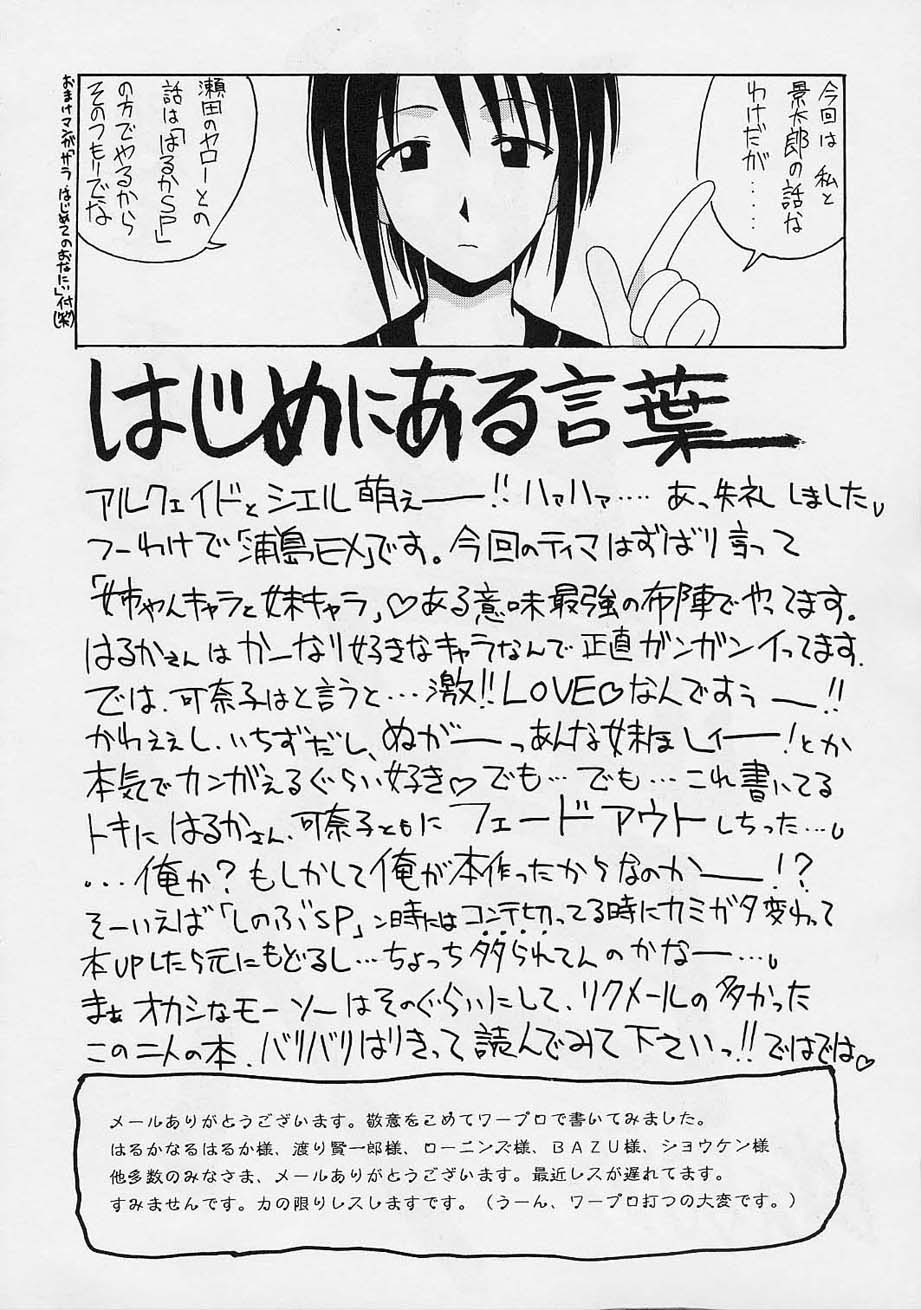 今回は 私と
景太郎の話な
わけだが‥‥
瀬田のヤローとの
話は「はるかSP」
の方でやるから
そのつもりでな
おまけマンガ「カラ はじめてのおなにぃ」付(笑)
はじめにある言葉
アルクェイドとシエル萌えー!! ハァハァ‥‥ あっ失礼しました
つーわけで「浦島EX」です。今回のテイマはずばり言って
「姉ちゃんキャラと妹キャラ」♡ある意味最強の布陣でやってます。
はるかさんはかーなり好きなキャラなんで正直ガンガンイってます.
では、可奈子はと言うと…激!!LOVE♡なんですぅー!!
かわええし、いちずだし、ぬがーっあんな妹ほしィー!とか
本気でカンがえるぐらい好き♡でも…でも…これ書いてる
トキにはるかさん、可奈子ともにフェードアウトしちった…
…俺か?もしかして俺が本作ったからなのかー!?
そーいえば「しのぶSP」ン時にはコンテ切ってる時にカミガタ変わって
本UPしたら元にもどるし…ちょっち多られてんのかなー…
まぁオカシなモーソーはそのぐらいにして、リクメールの多かった
この二人の本、バリバリはりきって読んでみて下さいっ!!ではでは♡
メールありがとうございます。敬意をこめてワープロで書いてみました。
はるかなるはるか様、渡り賢一郎様、ローニンズ様、BAZU様、ショウケン様
他多数のみなさま、メールありがとうございます。最近レスが遅れてます。
すみませんです。力の限りレスしますです。（うーん、ワープロ打つの大変です。）